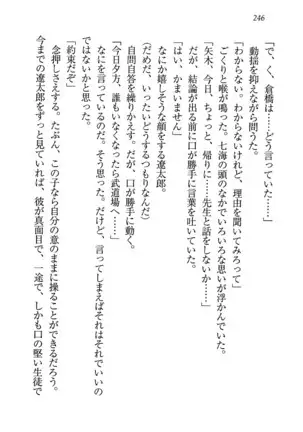 246
「で、く、倉橋は……どう言っていた……」
動揺を抑えながら問うた。
「わからない。わからないけれど、理由を聞いてみろって」
ごくりと喉が鳴った。七海の頭のなかでいろいろな思いが浮かんでいた。
「矢木、今日、ちょっと、帰りに……先生と話をしないか……」
だが、結論が出る前に口が勝手に言葉を吐いていた。
「はい、かまいません」
なにか嬉しそうな顔をする遼太郎。
(だめだ、いったいどうするつもりなんだ)
自問自答を繰りかえす。だが、口が勝手に動く。
「今日夕方、誰もいなくなったら武道場へ……」
なにを言っているのだ。そう思った。だけど、言ってしまえばそれはそれでいいの
ではないかと思った。
「約束だぞ」
念押しさえする。たぶん、この子なら自分の意のままに操ることができるだろう。
今までの遼太郎をずっと見ていれば、彼が真面目で、一途で、しかも口の堅い生徒で